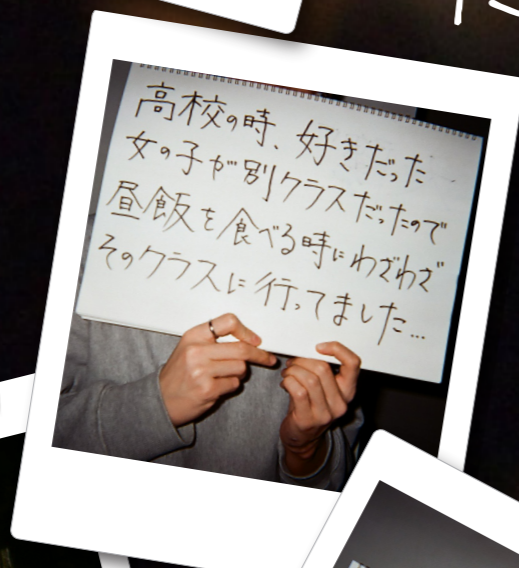 高校の時、好きだった
女の子が別クラスだったので
昼飯を食べる時にわざわざ
そのクラスに行ってました…